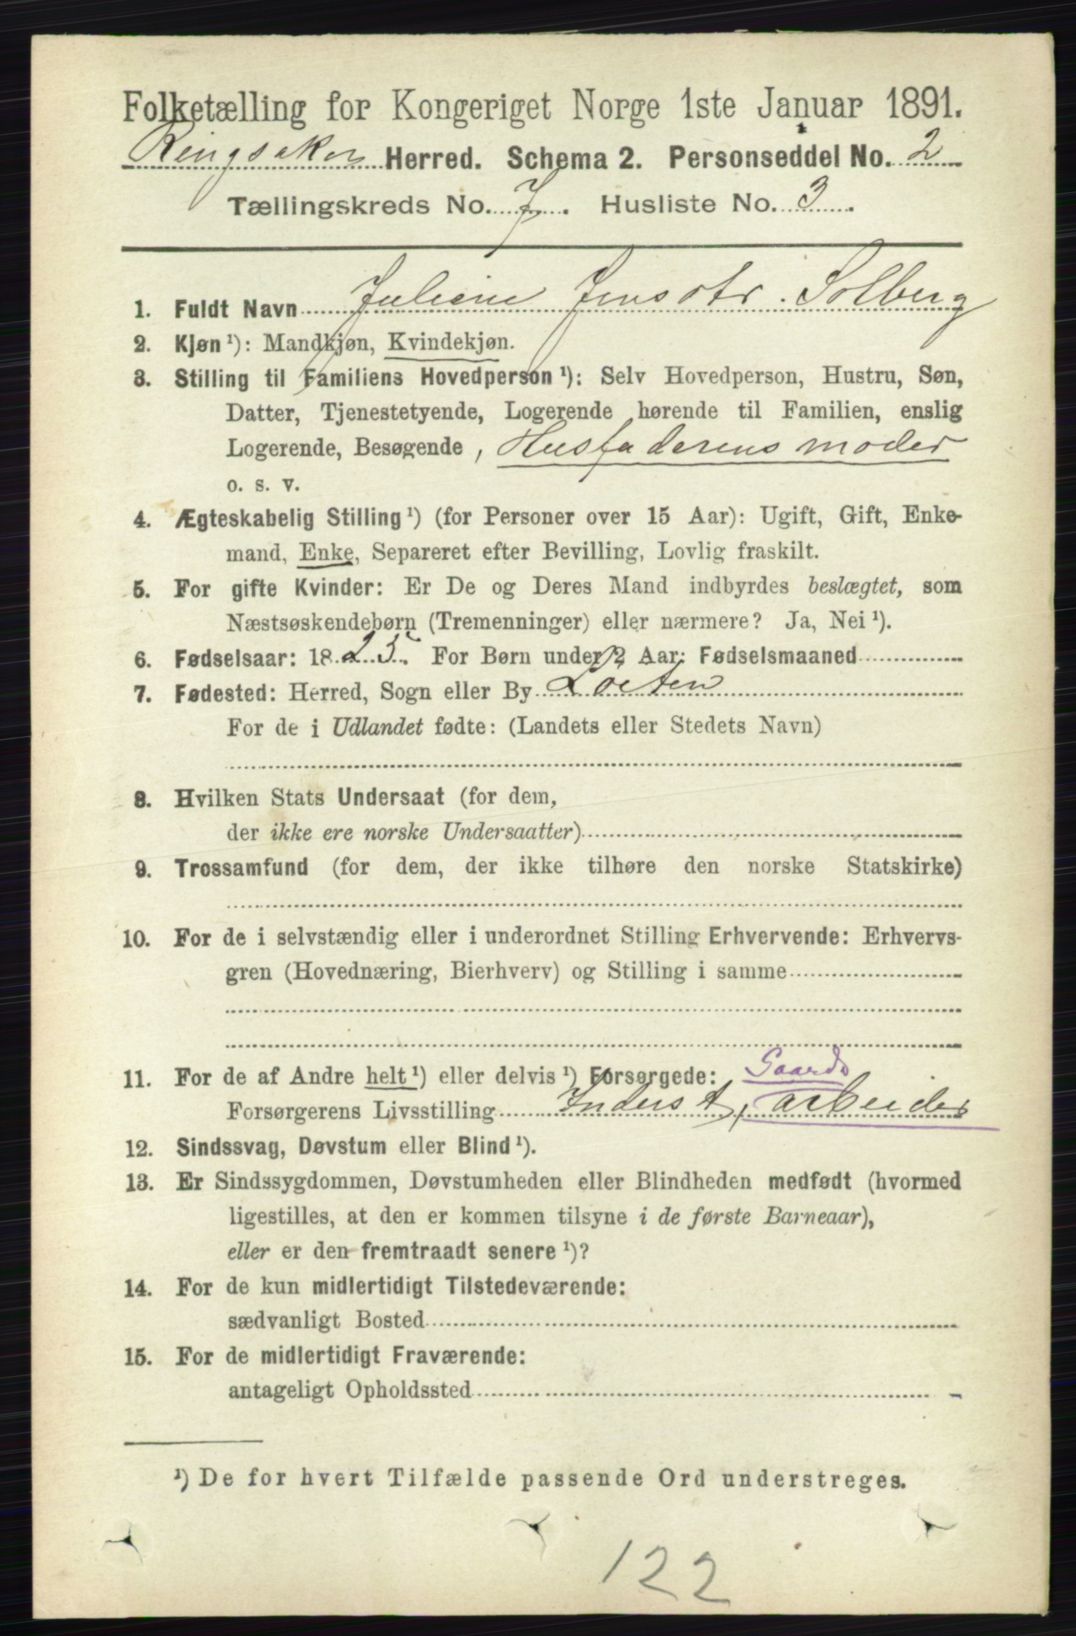 Folketælling for Kongeriget Norge 1ste Januar 1891.
Ringsaker Herred. Schema 2. Personseddel No. 2
Tællingskreds No. 7. Husliste No. 3.
1. Fuldt Navn Juliane Jensdtr. Solberg
2. Kjøn ¹): Mandkjøn, Kvindekjøn.
3. Stilling til Familiens Hovedperson ¹): Selv Hovedperson, Hustru, Søn,
Datter, Tjenestetyende, Logerende hørende til Familien, enslig
Logerende, Besøgende, Husfaderens moder
o. s. v.
4. Ægteskabelig Stilling ¹) (for Personer over 15 Aar): Ugift, Gift, Enke-
mand, Enke, Separeret efter Bevilling, Lovlig fraskilt.
5. For gifte Kvinder: Er De og Deres Mand indbyrdes beslægtet, som
Næstsøskendebørn (Tremenninger) eller nærmere? Ja, Nei ¹).
6. Fødselsaar: 1825. For Børn under 2 Aar: Fødselsmaaned
7. Fødested: Herred, Sogn eller By Løiten
For de i Udlandet fødte: (Landets eller Stedets Navn)
8. Hvilken Stats Undersaat (for dem,
der ikke ere norske Undersaatter)
9. Trossamfund (for dem, der ikke tilhøre den norske Statskirke)
10. For de i selvstændig eller i underordnet Stilling Erhvervende: Erhvervs-
gren (Hovednæring, Bierhverv) og Stilling i samme
11. For de af Andre helt ¹) eller delvis ¹) Forsørgede: Gaards
Forsørgerens Livsstilling Inderst, arbeider
12. Sindssvag, Døvstum eller Blind ¹).
13. Er Sindssygdommen, Døvstumheden eller Blindheden medfødt (hvormed
ligestilles, at den er kommen tilsyne i de første Barneaar),
eller er den fremtraadt senere ¹)?
14. For de kun midlertidigt Tilstedeværende:
sædvanligt Bosted
15. For de midlertidigt Fraværende:
antageligt Opholdssted
¹) De for hvert Tilfælde passende Ord understreges.
122